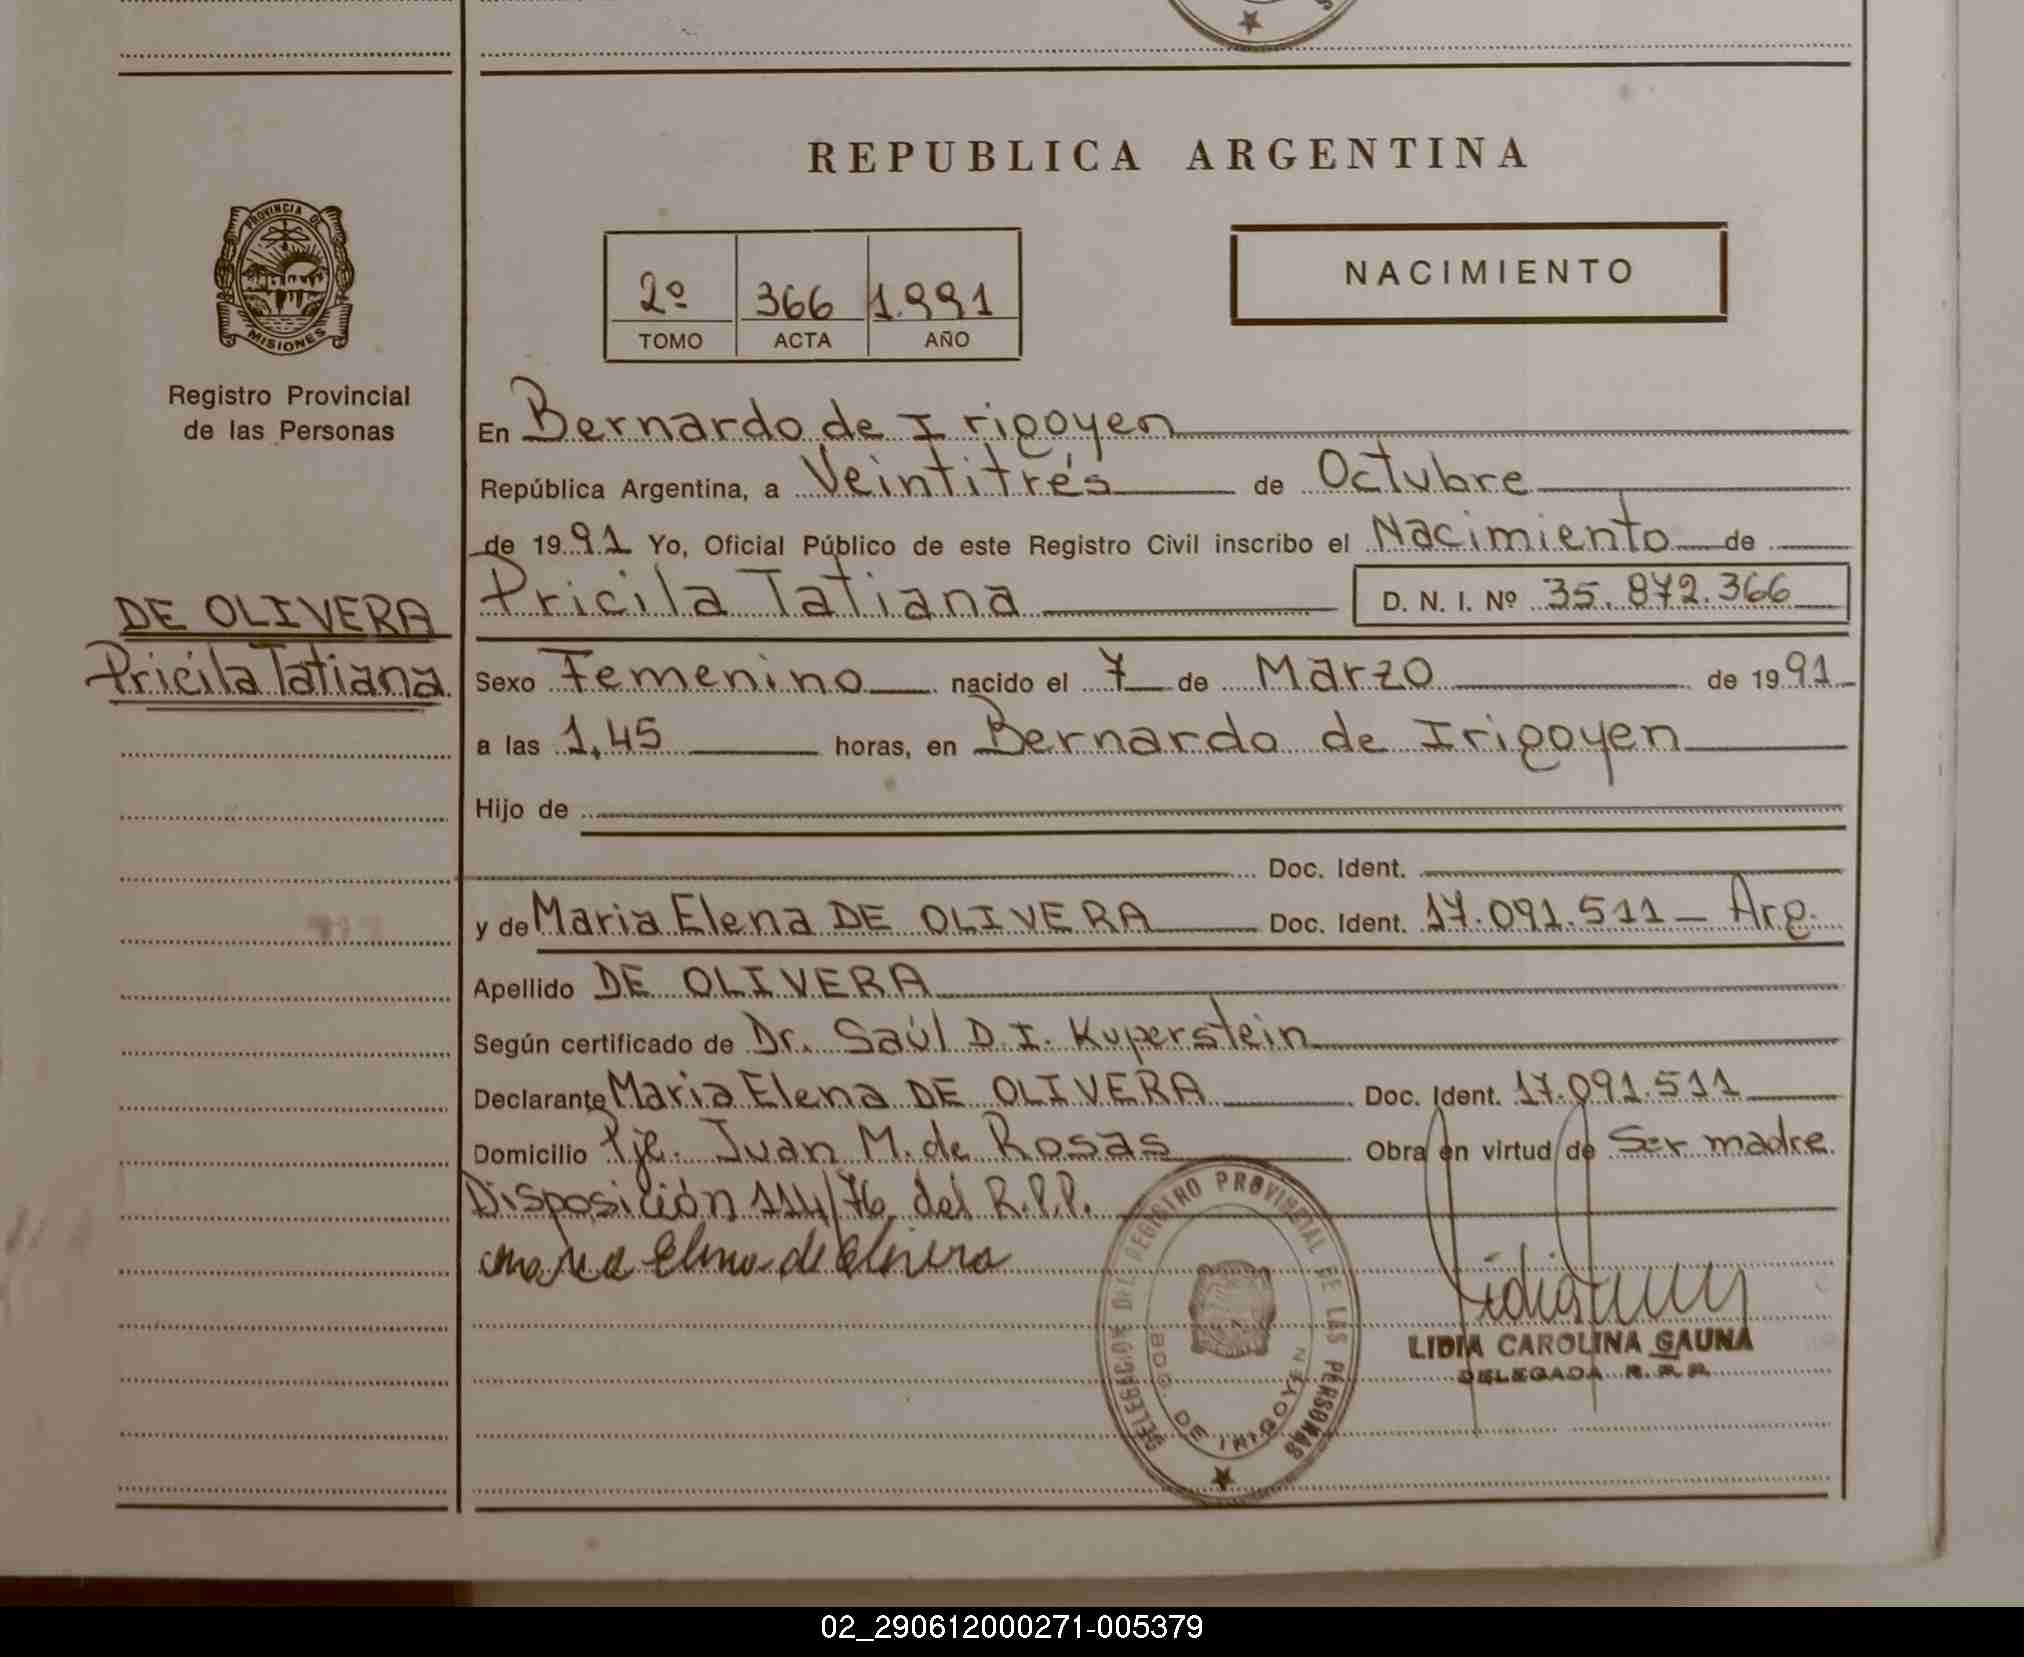 REPUBLICA ARGENTINA
PROVINCIA DE MISIONES
Registro Provincial
de las Personas
2º 366 1.991
TOMO ACTA AÑO
NACIMIENTO
En Bernardo de Irigoyen
República Argentina, a Veintitrés de Octubre
de 1991 Yo, Oficial Público de este Registro Civil inscribo el Nacimiento de
Pricila Tatiana D. N. I. Nº 35.872.366
DE OLIVERA
Pricila Tatiana
Sexo Femenino nacido el 7 de Marzo de 1991
a las 1,45 horas, en Bernardo de Irigoyen
Hijo de
Doc. Ident.
y de Maria Elena DE OLIVERA Doc. Ident. 17.091.511 - Arg.
Apellido DE OLIVERA
Según certificado de Dr. Saúl D. I. Kuperstein
Declarante Maria Elena DE OLIVERA Doc. Ident. 17.091.511
Domicilio Pje. Juan M. de Rosas Obra en virtud de Ser madre
Disposición 114/76 del R.P.P.
Maria Elena de Olivera
DELEGACION DEL REGISTRO PROVINCIAL DE LAS PERSONAS
BDO. DE IRIGOYEN
LIDIA CAROLINA GAUNA
DELEGADA R. P. P.
02_290612000271-005379